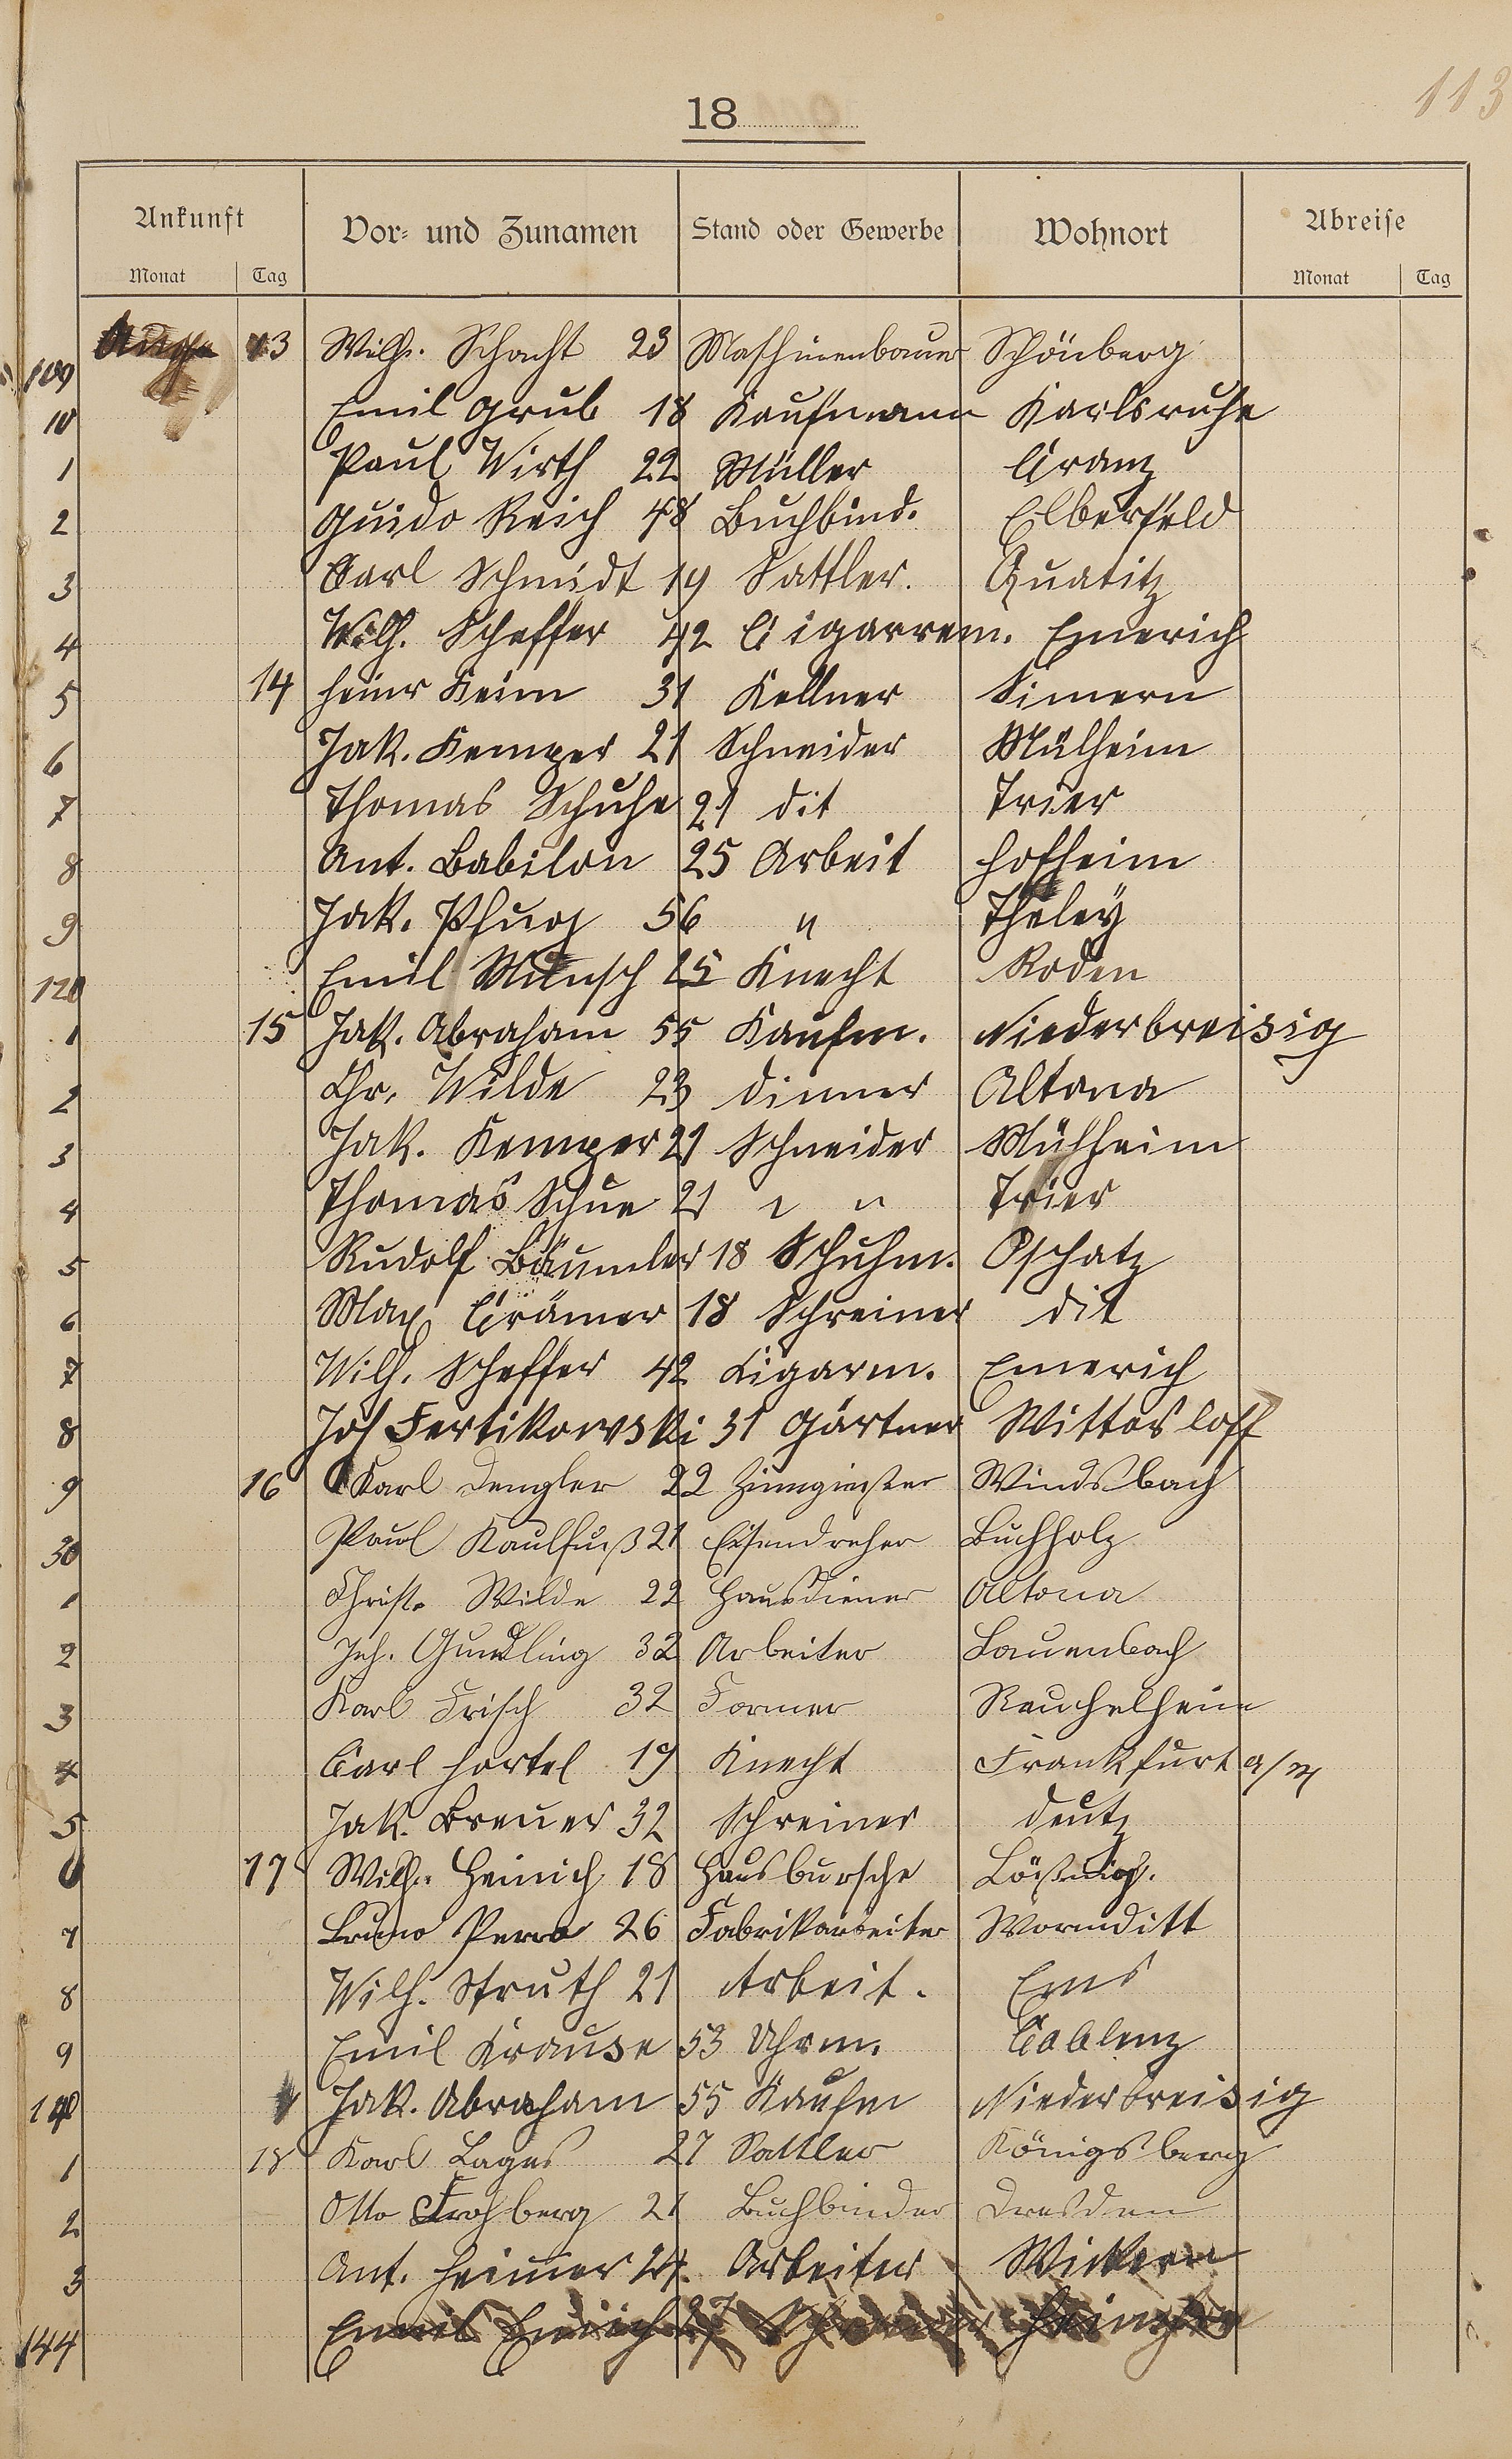 113
18
Ankunft Vor- und Zunamen Stand oder Gewerbe Wohnort Abreise
Monat Tag Monat Tag
109 13 Wilh. Schacht 23 Maschinenbauer Schönberg
10 Emil Grub 18 Kaufmann Karlsruhe
1 Paul Wirth 22 Müller Cranz
2 Guido Reich 48 Buchbind. Elberfeld
3 Carl Schmidt 19 Sattler. Quatitz
4 Wilh. Scheffer 42 Cigarrem. Emerich
5 14 Heinr Keim 31 Kellner Simern
6 Jak. Kemper 21 Schneider Mülheim
7 Thomas Schuhe 21 dit Trier
8 Ant. Babilon 25 Arbeit Hofheim
9 Jak. Pfug 56 " Theley
120 Emil Munsch 25 Knecht Roden
1 15 Jak. Abraham 55 Kaufm. Niederbreisig
2 Chr. Wilde 23 Dinner Altona
3 Jak. Kemper 21 Schneider Mülheim
4 Thomas Schue 21 " " Trier
5 Rudolf Bäumler 18 Schuhm. Oschatz
6 Max Crämer 18 Schreiner dit
7 Wilh. Scheffer 42 Cigarm. Emerich
8 Jos Fertikowski 31 Gärtner Wittosloff
9 16 Karl Dengler 22 Zinngießer Windsbach
30 Paul Kaulfuß 21 Eisendreher Buchholz
1 Christ. Wilde 22 Hausdiener Altona
2 Joh. Gundling 32 Arbeiter Lauenbach
3 Karl Frisch 32 Former Reuchelheim
4 Carl Hortel 19 Knecht Frankfurt a/M
5 Jak. Breuer 32 Schreiner Deutz
6 17 Wilh. Heinich 18 Hausbursche
7 Bruno Perro 26 Fabrikarbeiter Wormditt
8 Wilh. Struth 21 Arbeit. Ems
9 Emil Krause 53 Uhrm. Coblenz
140 Jak. Abraham 55 Kaufm Niederbreisig
1 18 Karl Lages 27 Sattler Königsberg
2 Otto Frohberg 21 Buchbinder Dresden
3 Ant. Heimer 24. Arbeiter Wickern
144 Emil